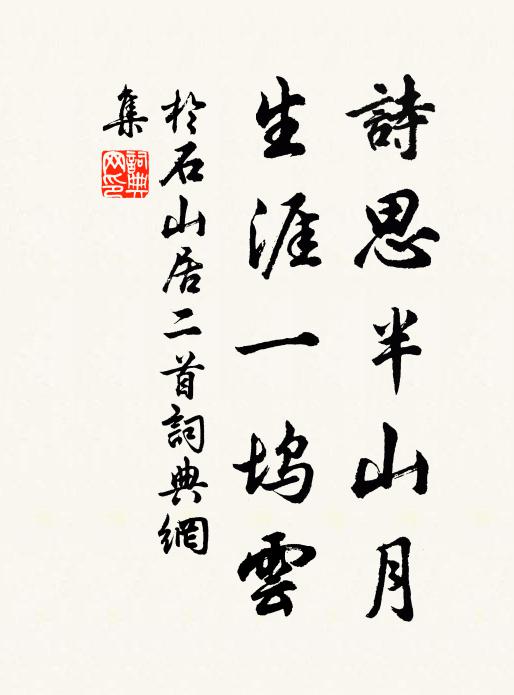 詩思半山月
生涯一塢雲
於石山居二首詞典網
集
詞典网印